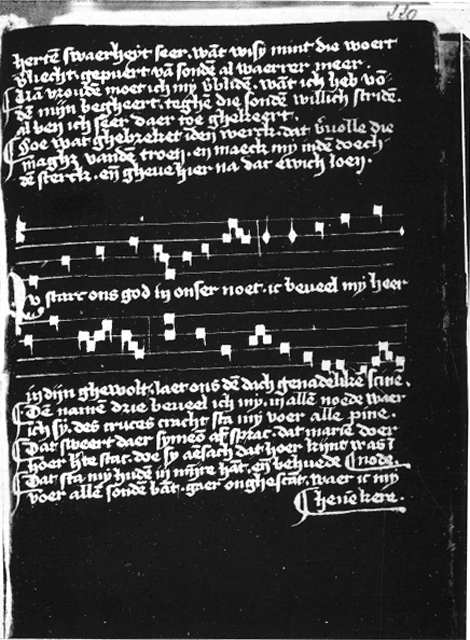 hertē swaerheyt seer. wāt wisy mint die woert
vliecht. gepuert vā sondē al waerter meer.
Vā vroudē moet ich my vblidē. wāt ich heb vō
dē mijn begheert. teghē die sondē willich stridē.
al ben ich seer daer toe ghekeert.
Soe wat ghebreket iden werck. dat vvolle die
maghz vandē troen. en maeck my indē doech
dē sterck. eñ gheve hier na dat ewich loen.
Nv starc ons god in onser noet. ic beveel my heer
in dijn ghewolt. laet ons dē dach genadelikē scinē.
Dē namē drie beveel ich my. in allē noede waer
ich sy. des cruces cracht sta my voer alle pine.
Dat sweert daer symeō af sprac. dat mariē doer
hoer hte stac. doe sy aēsach dat hoer kijnt was
Dat sta my hudē in mijre hāt. eñ behuede
node.
voer allē sondē bāt. gaer onghescat. waer ic my
henē kere.